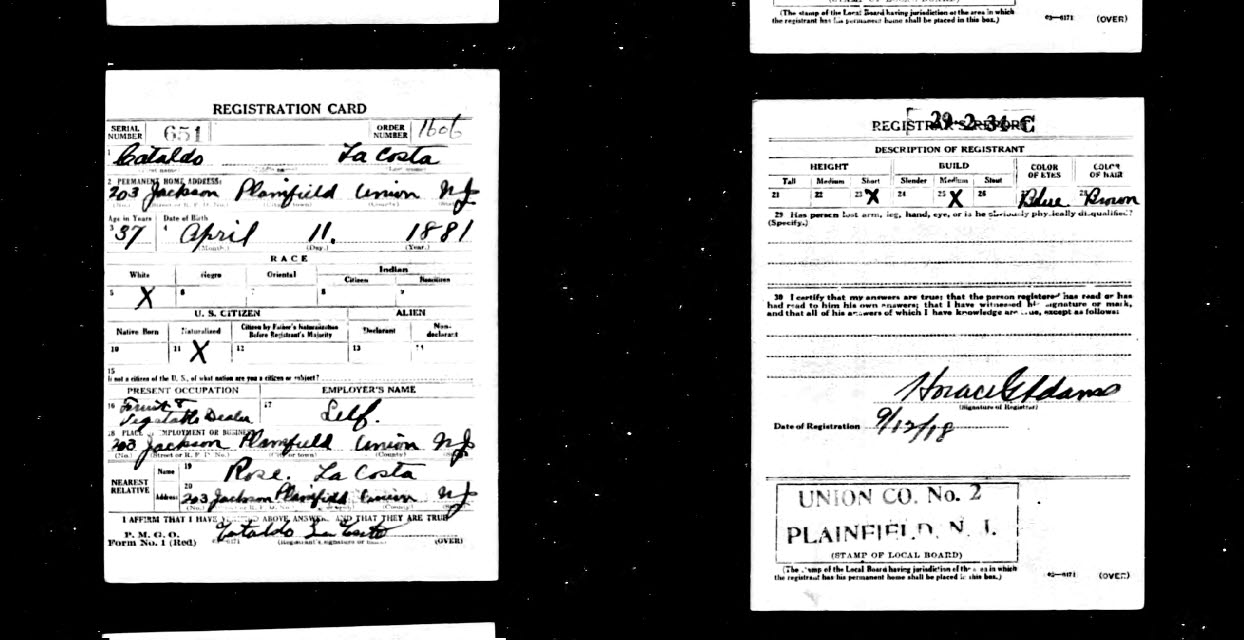 (The stamp of the Local Board having jurisdiction of the area in which
the registrant has his permanent home shall be placed in this box.)
03—6171 (OVER)
REGISTRATION CARD
SERIAL NUMBER 651 ORDER NUMBER 1606
1 Cataldo La Costa
2 PERMANENT HOME ADDRESS:
203 Jackson Plainfield Union NJ
(No.) (Street or R. F. D. No.) (City or town) (County) (State)
Age in Years Date of Birth
3 37 4 April 11. 1881
(Month.) (Day.) (Year.)
RACE
White Negro Oriental Indian
Citizen Noncitizen
5 X 6 7 8 9
U. S. CITIZEN ALIEN
Native Born Naturalized Citizen by Father's Naturalization Before Registrant's Majority Declarant Non-declarant
10 11 X 12 13 14
15
If not a citizen of the U. S., of what nation are you a citizen or subject?
PRESENT OCCUPATION EMPLOYER'S NAME
16 Fruit + 17 Self.
Vegetable Dealer
18 PLACE OF EMPLOYMENT OR BUSINESS
203 Jackson Plainfield Union NJ
(No.) (Street or R. F. D. No.) (City or town) (County) (State)
NEAREST RELATIVE
Name 19 Rose. La Costa
Address 20 203 Jackson Plainfield Union NJ
I AFFIRM THAT I HAVE VERIFIED ABOVE ANSWERS AND THAT THEY ARE TRUE
P. M. G. O.
Form No. 1 (Red) 03—6171 Cataldo La Costa
(Registrant's signature or mark) (OVER)
29-2-34 C
REGISTRAR'S REPORT
DESCRIPTION OF REGISTRANT
HEIGHT BUILD COLOR OF EYES COLOR OF HAIR
Tall Medium Short Slender Medium Stout
21 22 23 X 24 25 X 26 27 Blue 28 Brown
29 Has person lost arm, leg, hand, eye, or is he obviously physically disqualified?
(Specify.)
30 I certify that my answers are true; that the person registered has read or has
had read to him his own answers; that I have witnessed his signature or mark,
and that all of his answers of which I have knowledge are true, except as follows:
Horace G Adams
(Signature of Registrar)
Date of Registration 9/12/18
UNION CO. No. 2
PLAINFIELD, N. J.
(STAMP OF LOCAL BOARD)
(The stamp of the Local Board having jurisdiction of the area in which
the registrant has his permanent home shall be placed in this box.)
03—6171 (OVER)